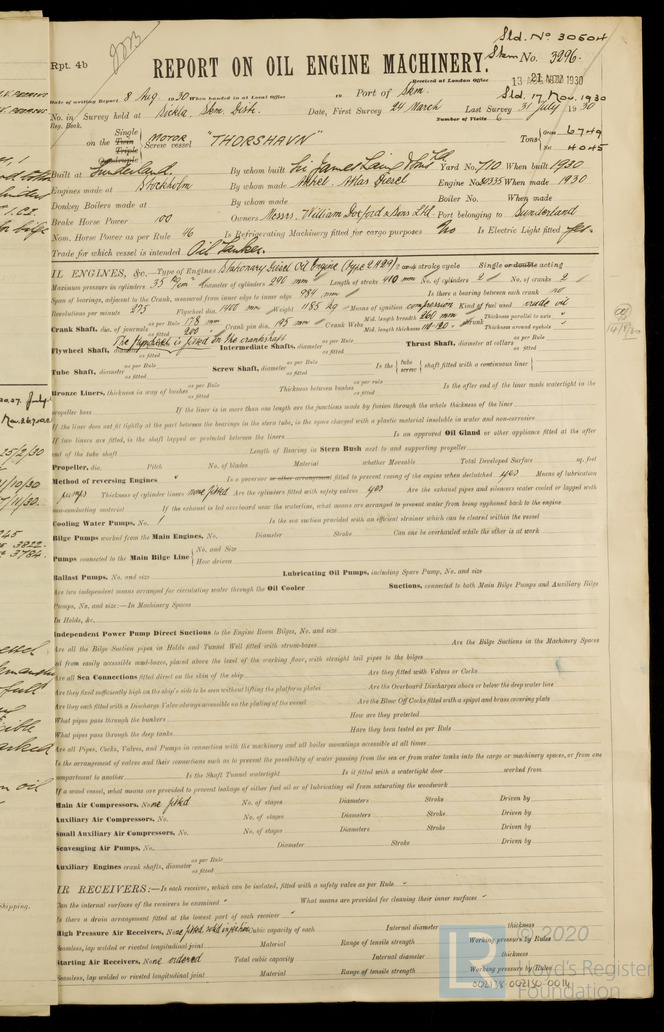 Rpt. 4b
Sld. No 30504
REPORT ON OIL ENGINE MACHINERY.
Skm No. 3296.
Received at London Office
21 NOV 1930
Sld. 17 Nov. 1930
Date of writing Report 8 Aug. 1930 When handed in at Local Office 19 Port of Skm.
No. in Survey held at Sickla, Skm. Distr. Date, First Survey 24 March Last Survey 31 July 1930
Reg. Book. Number of Visits 6
on the Single Twin Triple Quadruple Screw vessel MOTOR "THORSHAVN" Tons Gross 6749 Net 4045
Built at Sunderland. By whom built Sir James Laing & Sons Ltd. Yard No. 710 When built 1930
Engines made at Stockholm By whom made Atlas Diesel Engine No. When made 1930
Donkey Boilers made at By whom made Boiler No. When made
Brake Horse Power 100 Owners Messrs. William Doxford & Sons Ltd. Port belonging to Sunderland
Nom. Horse Power as per Rule 46 Is Refrigerating Machinery fitted for cargo purposes No Is Electric Light fitted Yes.
Trade for which vessel is intended Oil Tanker.
IL ENGINES, &c.—Type of Engines Stationary Diesel Oil Engine stroke cycle Single or double acting
Maximum pressure in cylinders 35 Diameter of cylinders 290 mm Length of stroke 410 mm No. of cylinders 2 No. of cranks 2
Span of bearings, adjacent to the Crank, measured from inner edge to inner edge mm Is there a bearing between each crank no
Revolutions per minute 275 Flywheel dia. 1400 mm Weight 1185 kg Means of ignition compression Kind of fuel used crude oil
Crank Shaft, dia. of journals as per Rule 178 mm as fitted 200 Crank pin dia. 195 mm Crank Webs Mid. length breadth 260 mm Mid. length thickness shrunk Thickness parallel to axis Thickness around eyehole
The flywheel is fitted on the crankshaft
Flywheel Shaft, diameter as per Rule as fitted Intermediate Shafts, diameter as per Rule as fitted Thrust Shaft, diameter at collars as per Rule as fitted
Tube Shaft, diameter as per Rule as fitted Screw Shaft, diameter as per Rule as fitted Is the tube screw shaft fitted with a continuous liner
Bronze Liners, thickness in way of bushes as per Rule as fitted Thickness between bushes as per rule as fitted Is the after end of the liner made watertight in the
propeller boss If the liner is in more than one length are the junctions made by fusion through the whole thickness of the liner
If the liner does not fit tightly at the part between the bearings in the stern tube, is the space charged with a plastic material insoluble in water and non-corrosive
If two liners are fitted, is the shaft lapped or protected between the liners Is an approved Oil Gland or other appliance fitted at the after
end of the tube shaft Length of Bearing in Stern Bush next to and supporting propeller
Propeller, dia. Pitch No. of blades Material whether Moveable Total Developed Surface sq. feet
Method of reversing Engines " Is a governor or other arrangement fitted to prevent racing of the engine when declutched yes Means of lubrication
pumps Thickness of cylinder liners none fitted Are the cylinders fitted with safety valves yes Are the exhaust pipes and silencers water cooled or lagged with
non-conducting material If the exhaust is led overboard near the waterline, what means are arranged to prevent water from being syphoned back to the engine
Cooling Water Pumps, No. 1 Is the sea suction provided with an efficient strainer which can be cleared within the vessel
Bilge Pumps worked from the Main Engines, No. Diameter Stroke Can one be overhauled while the other is at work
Pumps connected to the Main Bilge Line No. and Size How driven
Ballast Pumps, No. and size Lubricating Oil Pumps, including Spare Pump, No. and size
Are two independent means arranged for circulating water through the Oil Cooler Suctions, connected to both Main Bilge Pumps and Auxiliary Bilge
Pumps, No. and size:—In Machinery Spaces
In Holds, &c.
Independent Power Pump Direct Suctions to the Engine Room Bilges, No. and size
Are all the Bilge Suction pipes in Holds and Tunnel Well fitted with strum-boxes Are the Bilge Suctions in the Machinery Spaces
led from easily accessible mud-boxes, placed above the level of the working floor, with straight tail pipes to the bilges
Are all Sea Connections fitted direct on the skin of the ship Are they fitted with Valves or Cocks
Are they fixed sufficiently high on the ship's side to be seen without lifting the platform plates Are the Overboard Discharges above or below the deep water line
Are they each fitted with a Discharge Valve always accessible on the plating of the vessel Are the Blow Off Cocks fitted with a spigot and brass covering plate
What pipes pass through the bunkers How are they protected
What pipes pass through the deep tanks Have they been tested as per Rule
Are all Pipes, Cocks, Valves, and Pumps in connection with the machinery and all boiler mountings accessible at all times
Is the arrangement of valves and their connections such as to prevent the possibility of water passing from the sea or from water tanks into the cargo or machinery spaces, or from one
compartment to another Is the Shaft Tunnel watertight Is it fitted with a watertight door worked from
If a wood vessel, what means are provided to prevent leakage of either fuel oil or of lubricating oil from saturating the woodwork
Main Air Compressors, No. none fitted No. of stages Diameters Stroke Driven by
Auxiliary Air Compressors, No. No. of stages Diameters Stroke Driven by
Small Auxiliary Air Compressors, No. No. of stages Diameters Stroke Driven by
Scavenging Air Pumps, No. Diameter Stroke Driven by
Auxiliary Engines crank shafts, diameter as per Rule as fitted
IR RECEIVERS:—Is each receiver, which can be isolated, fitted with a safety valve as per Rule "
Can the internal surfaces of the receivers be examined " What means are provided for cleaning their inner surfaces "
Is there a drain arrangement fitted at the lowest part of each receiver "
High Pressure Air Receivers, No. none fitted solid injection Cubic capacity of each Internal diameter thickness
Seamless, lap welded or riveted longitudinal joint Material Range of tensile strength Working pressure by Rules
Starting Air Receivers, No. none ordered Total cubic capacity Internal diameter thickness
Seamless, lap welded or riveted longitudinal joint Material Range of tensile strength Working pressure by Rules
© 2020
Lloyd's Register
Foundation
002138-002150-0014
25/2/30
Shipping.